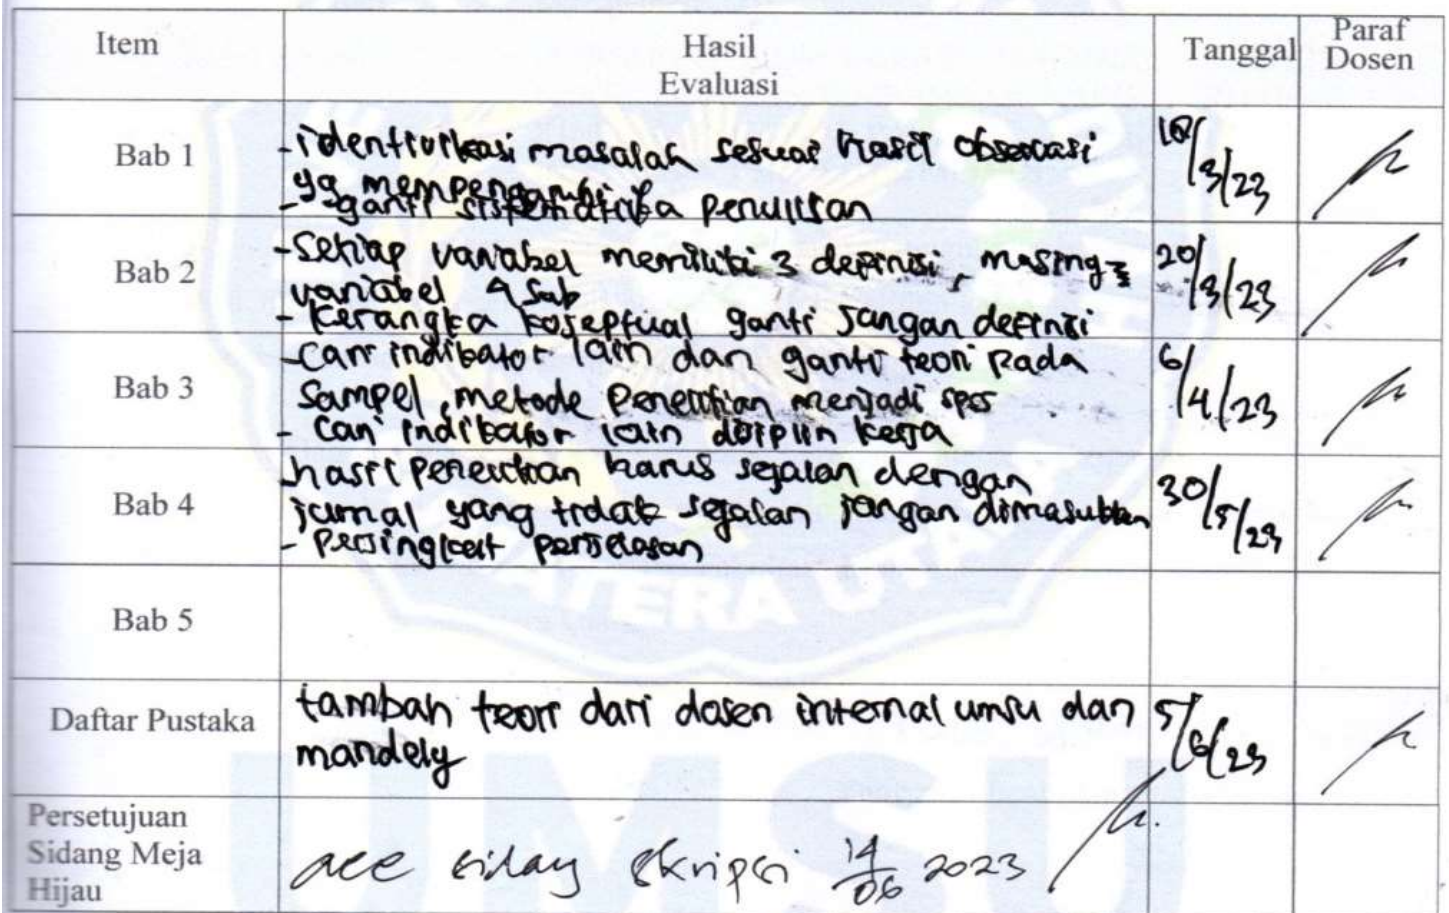 Item Hasil Evaluasi Tanggal Paraf Dosen
Bab 1
- identivikasi masalah sesuai hasil observasi
yg mempengaruhi
- ganti sistematika penulisan
18/3/23
Bab 2
- Setiap variabel memiliki 3 definisi, masing2
variabel 4 sub
- Kerangka koseptual ganti jangan definisi
20/3/23
Bab 3
- Cari indikator lain dan ganti teori pada
sampel, metode penelitian menjadi spss
- Cari indikator lain disiplin kerja
6/4/23
Bab 4
- hasil penelitian harus sejalan dengan
jurnal yang tidak sejalan jangan dimasukkan
- persingkat penjelasan
30/5/23
Bab 5
Daftar Pustaka
tambah teori dari dosen internal umsu dan
mandely
5/6/23
Persetujuan
Sidang Meja
Hijau
acc sidang skripsi 14/06 2023
ATERA UTA
UMSU